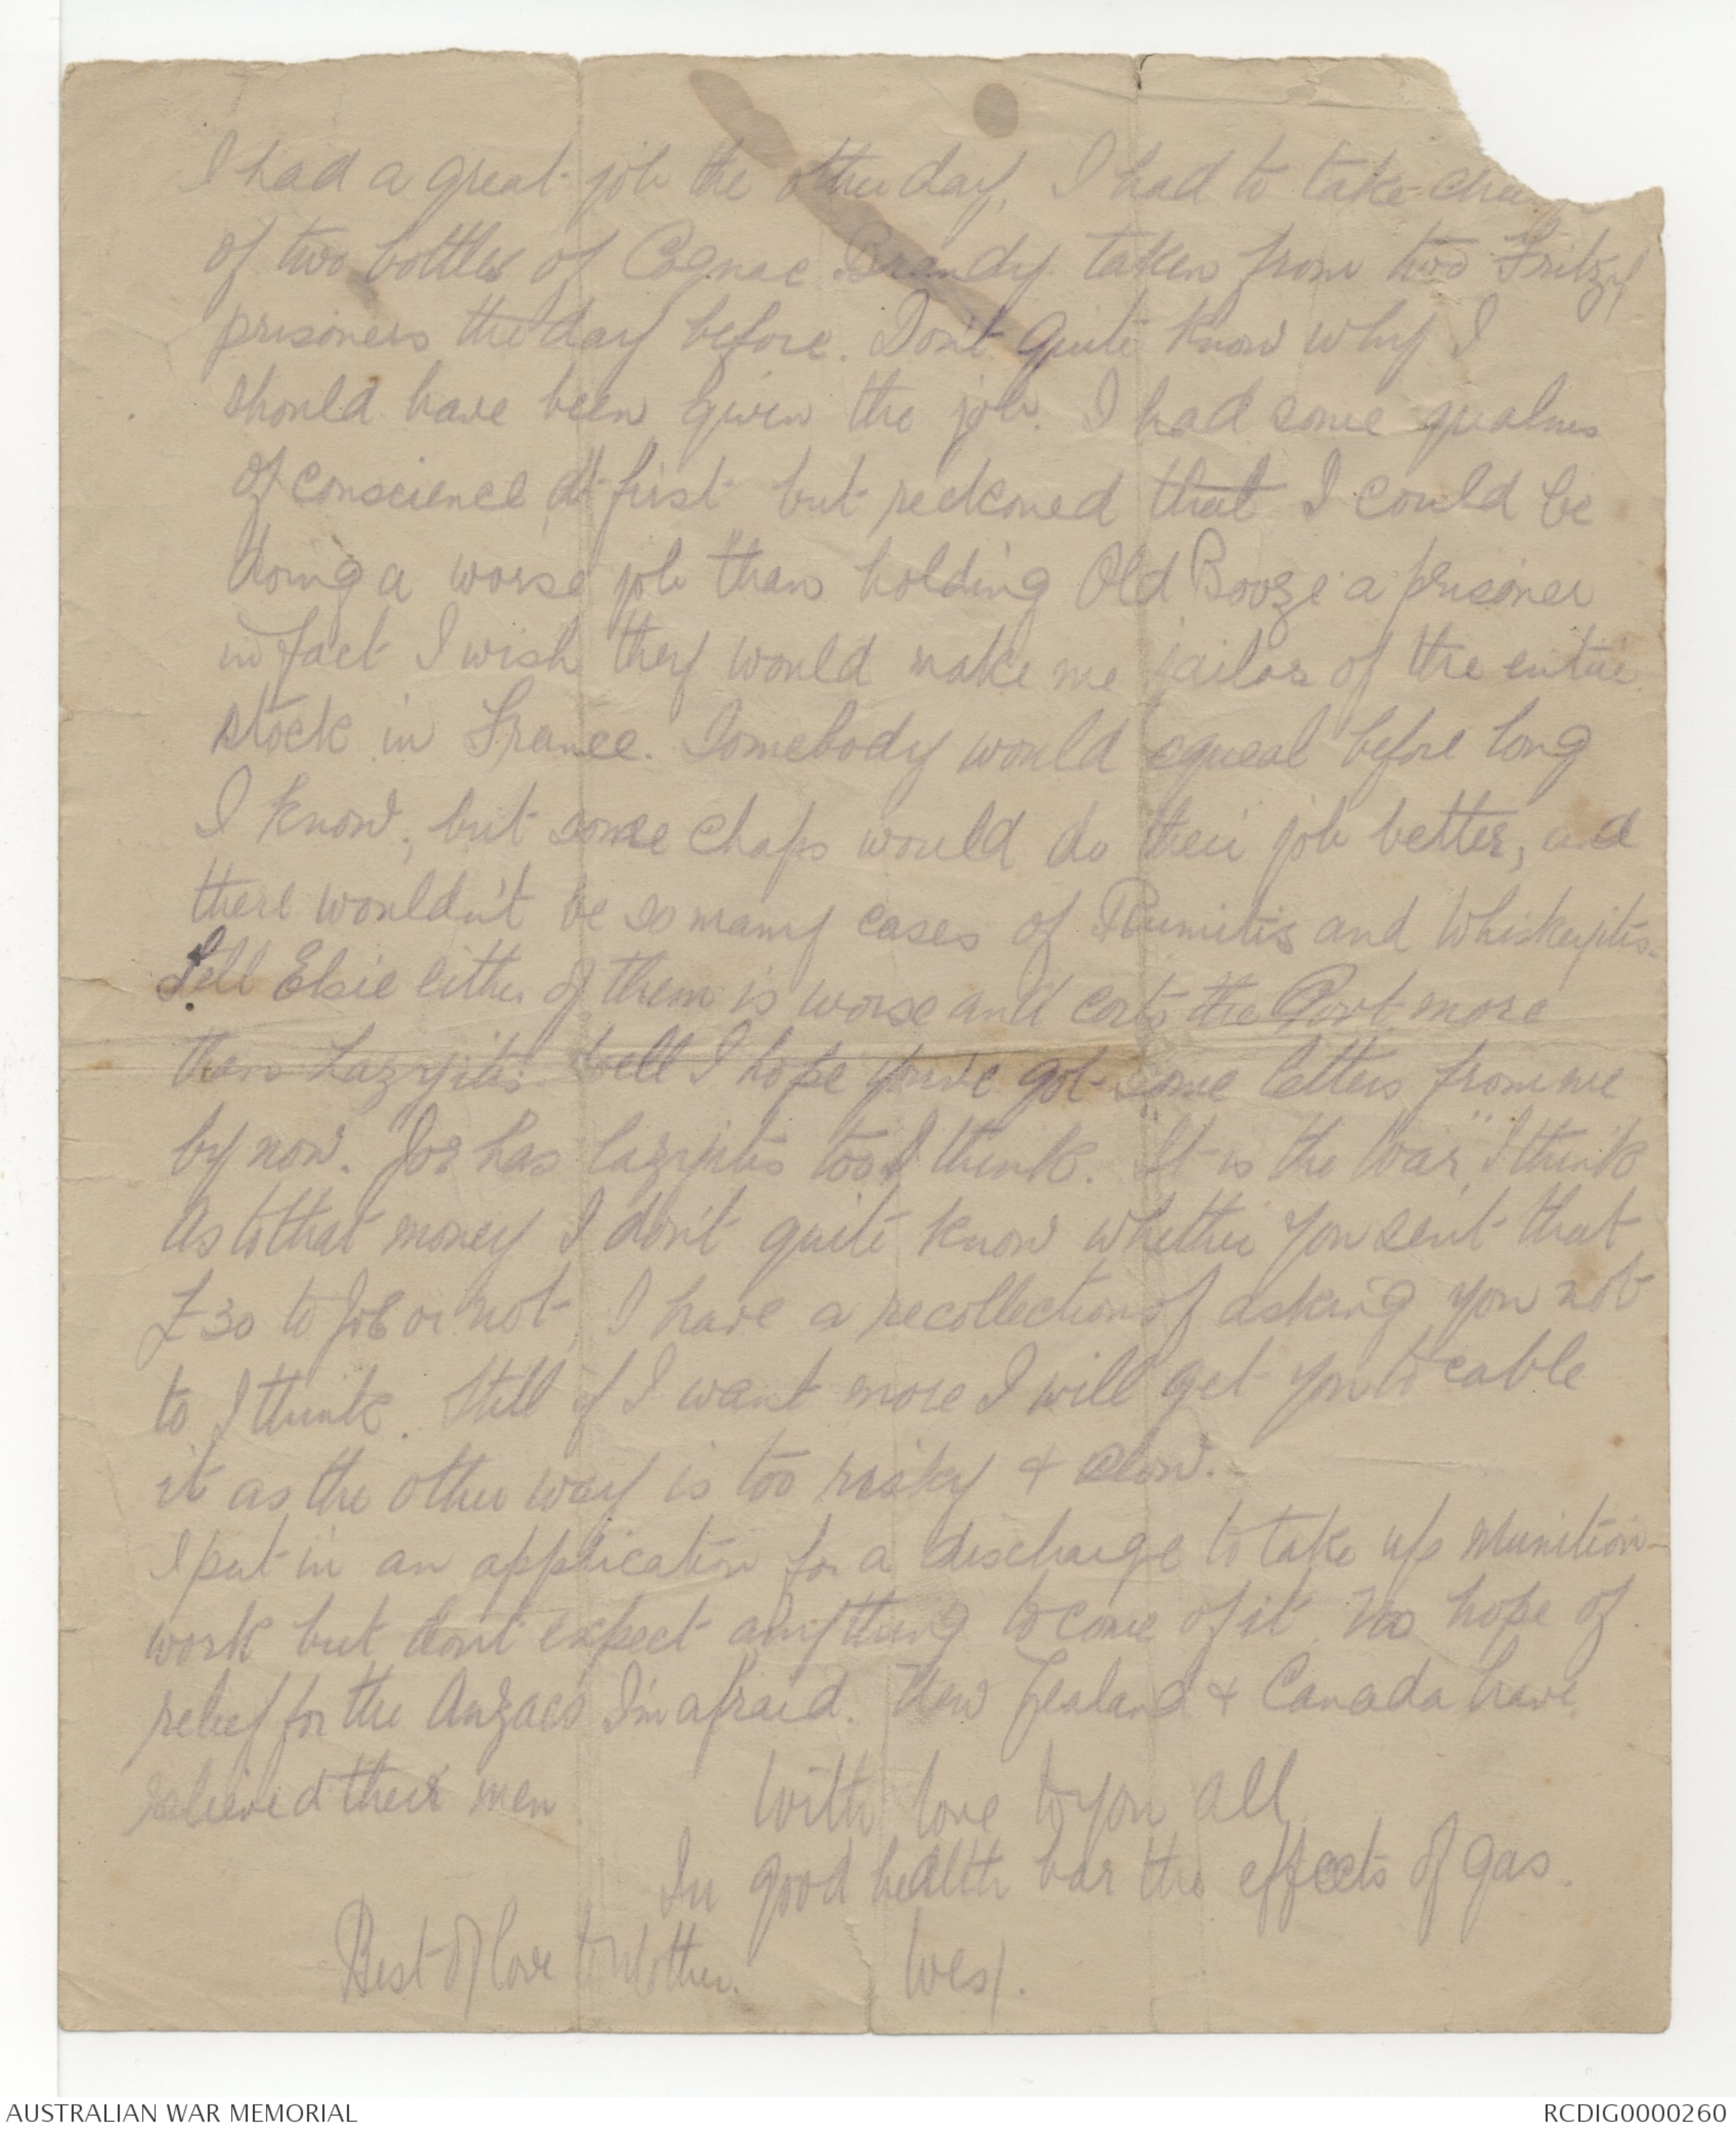 I had a great job the other day, I had to take
of two bottles of Cognac Brandy taken from two Fritzy
prisoners the day before. Don't quite know why I
should have been given the job. I had some qualms
of conscience at first but reckoned that I could be
doing a worse job than holding Old Booze a prisoner
in fact I wish they would make me jailor of the entire
stock in France. Somebody would squeal before long
I know, but some chaps would do their job better, and
there wouldn't be so many cases of Rumitis and Whiskeyitis.
Tell Elsie either of them is worse and costs the Govt more
than Lazyitis. Well I hope you've got some letters from me
by now. Joe has lazyitis too I think. "It is the War," I think
As to that money I don't quite know whether you sent that
£30 to Joe or not, I have a recollection of asking you not
to I think. Still if I want more I will get you to cable
it as the other way is too risky & slow.
I put in an application for a discharge to take up Munition-
work but don't expect anything to come of it. No hope of
relief for the Anzacs I'm afraid. New Zealand & Canada have
relieved their men
With love to you all
In good health bar the effects of gas.
Best of love to Mother. Wes.
AUSTRALIAN WAR MEMORIAL
RCDIG0000260